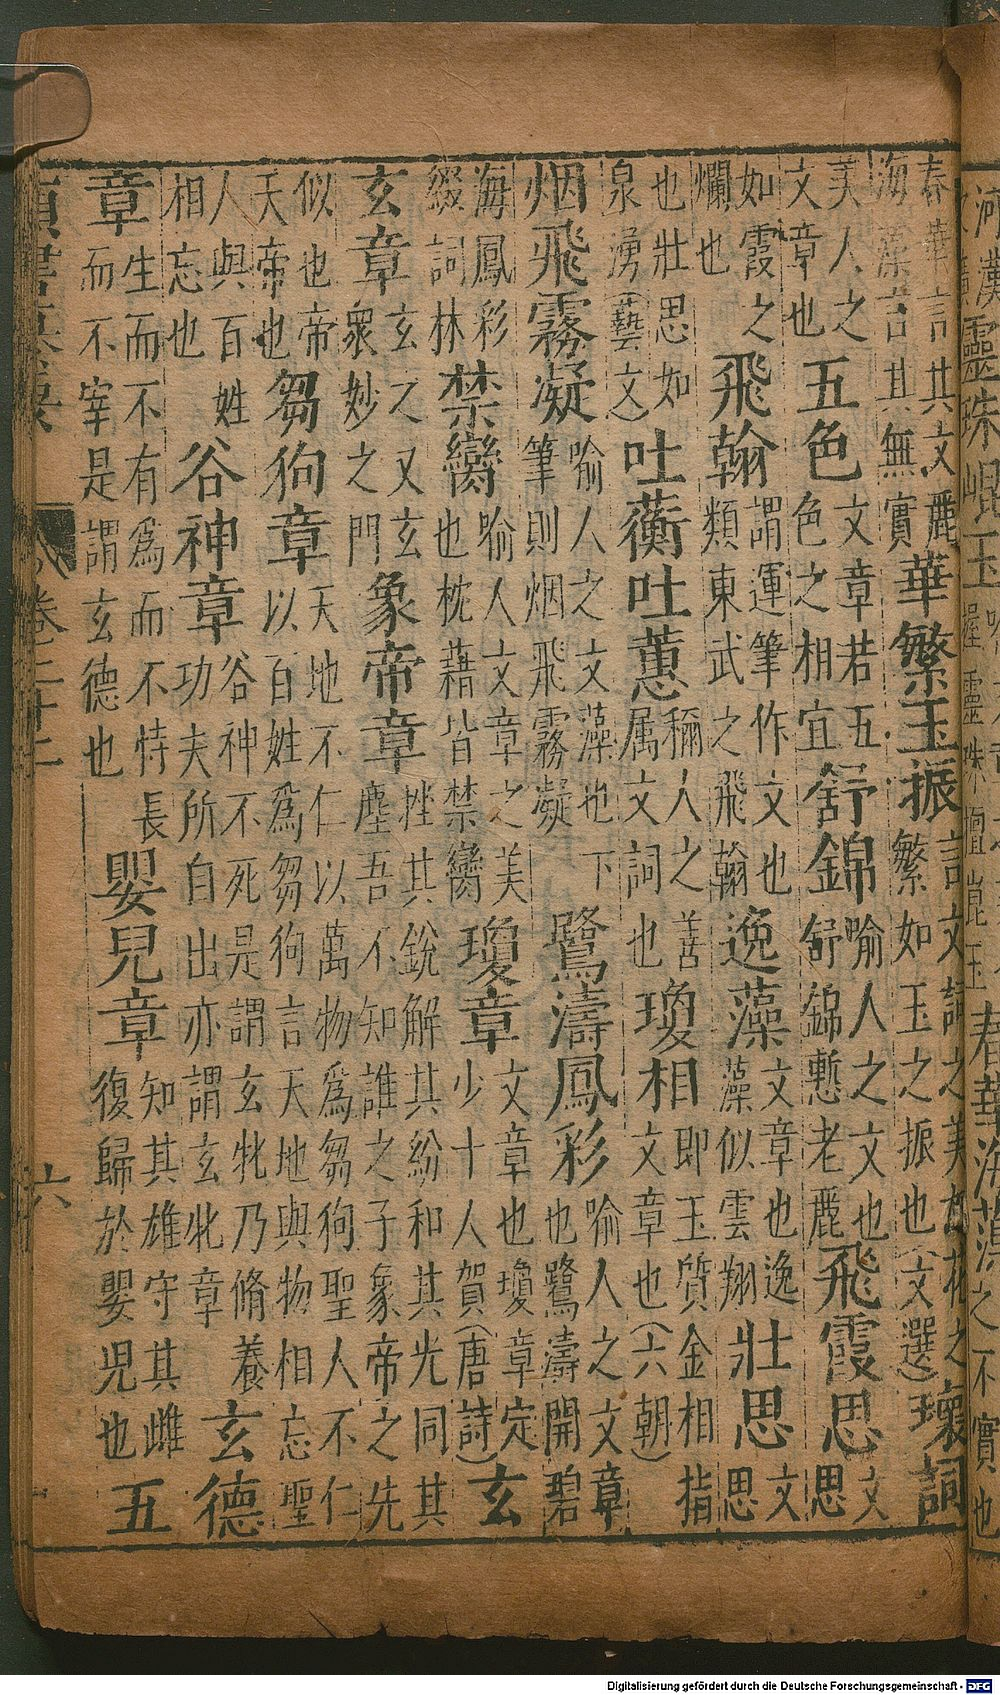 春華言其文麗海藻言其無實華繁玉振言文詞之美如花之繁如玉之振也(文選)瓌詞
美人之文章也五色文章若五色之相宜舒錦喻人之文也舒錦慙老麗飛霞思文思
如霞之爛也飛翰謂運筆作文也類東武之飛翰逸藻文章也逸藻似雲翔壯思文思
也壯思如泉湧(藝文)吐蘅吐蕙稱人之善属文詞也瓊相即玉質金相指文章也(六朝)
烟飛霧凝喻人之文藻也下筆則烟飛霧凝鷺濤鳳彩喻人之文章也鷺濤開碧
海鳳彩綴詞林禁臠喻人文章之美也枕藉皆禁臠瓊章文章也瓊章定少十人賀(唐詩)玄
玄章玄之又玄衆妙之門象帝章挫其銳解其紛和其光同其塵吾不知誰之子象帝之先
似也帝天帝也芻狗章天地不仁以萬物爲芻狗聖人不仁以百姓爲芻狗言天地與物相忘聖
人與百姓相忘也谷神章谷神不死是謂玄牝乃脩養功夫所自出亦謂玄牝章玄德
章生而不有爲而不恃長而不宰是謂玄德也嬰兒章知其雄守其雌復歸於嬰兒也五
卷二十二
六
Digitalisierung gefördert durch die Deutsche Forschungsgemeinschaft - DFG